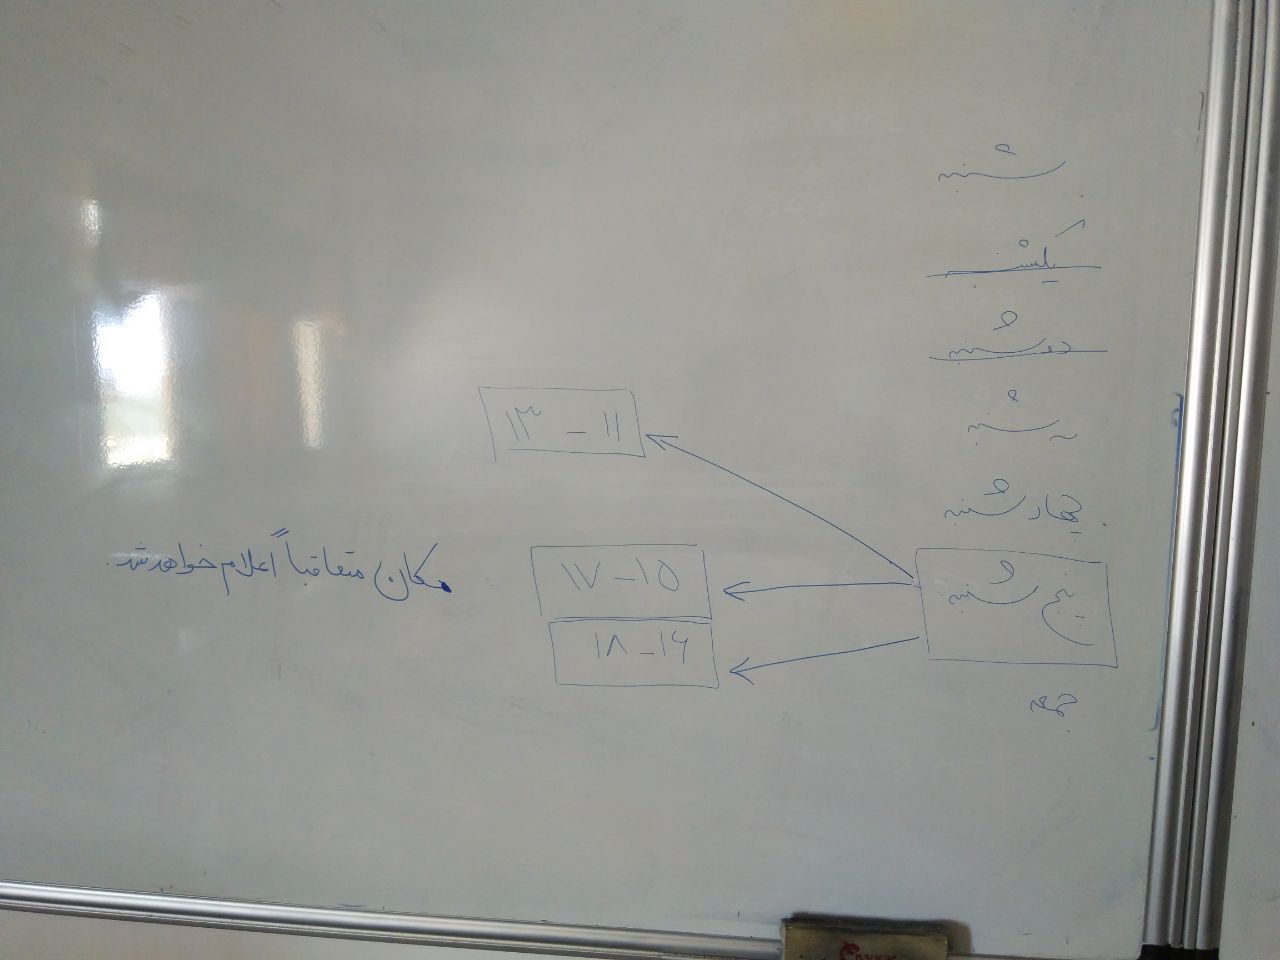 شنبه
یکشنبه
دوشنبه
سه شنبه
چهارشنبه
پنج شنبه
جمعه
۱۱ - ۱۳
۱۵ - ۱۷
۱۶ - ۱۸
مکان متعاقباً اعلام خواهد شد.